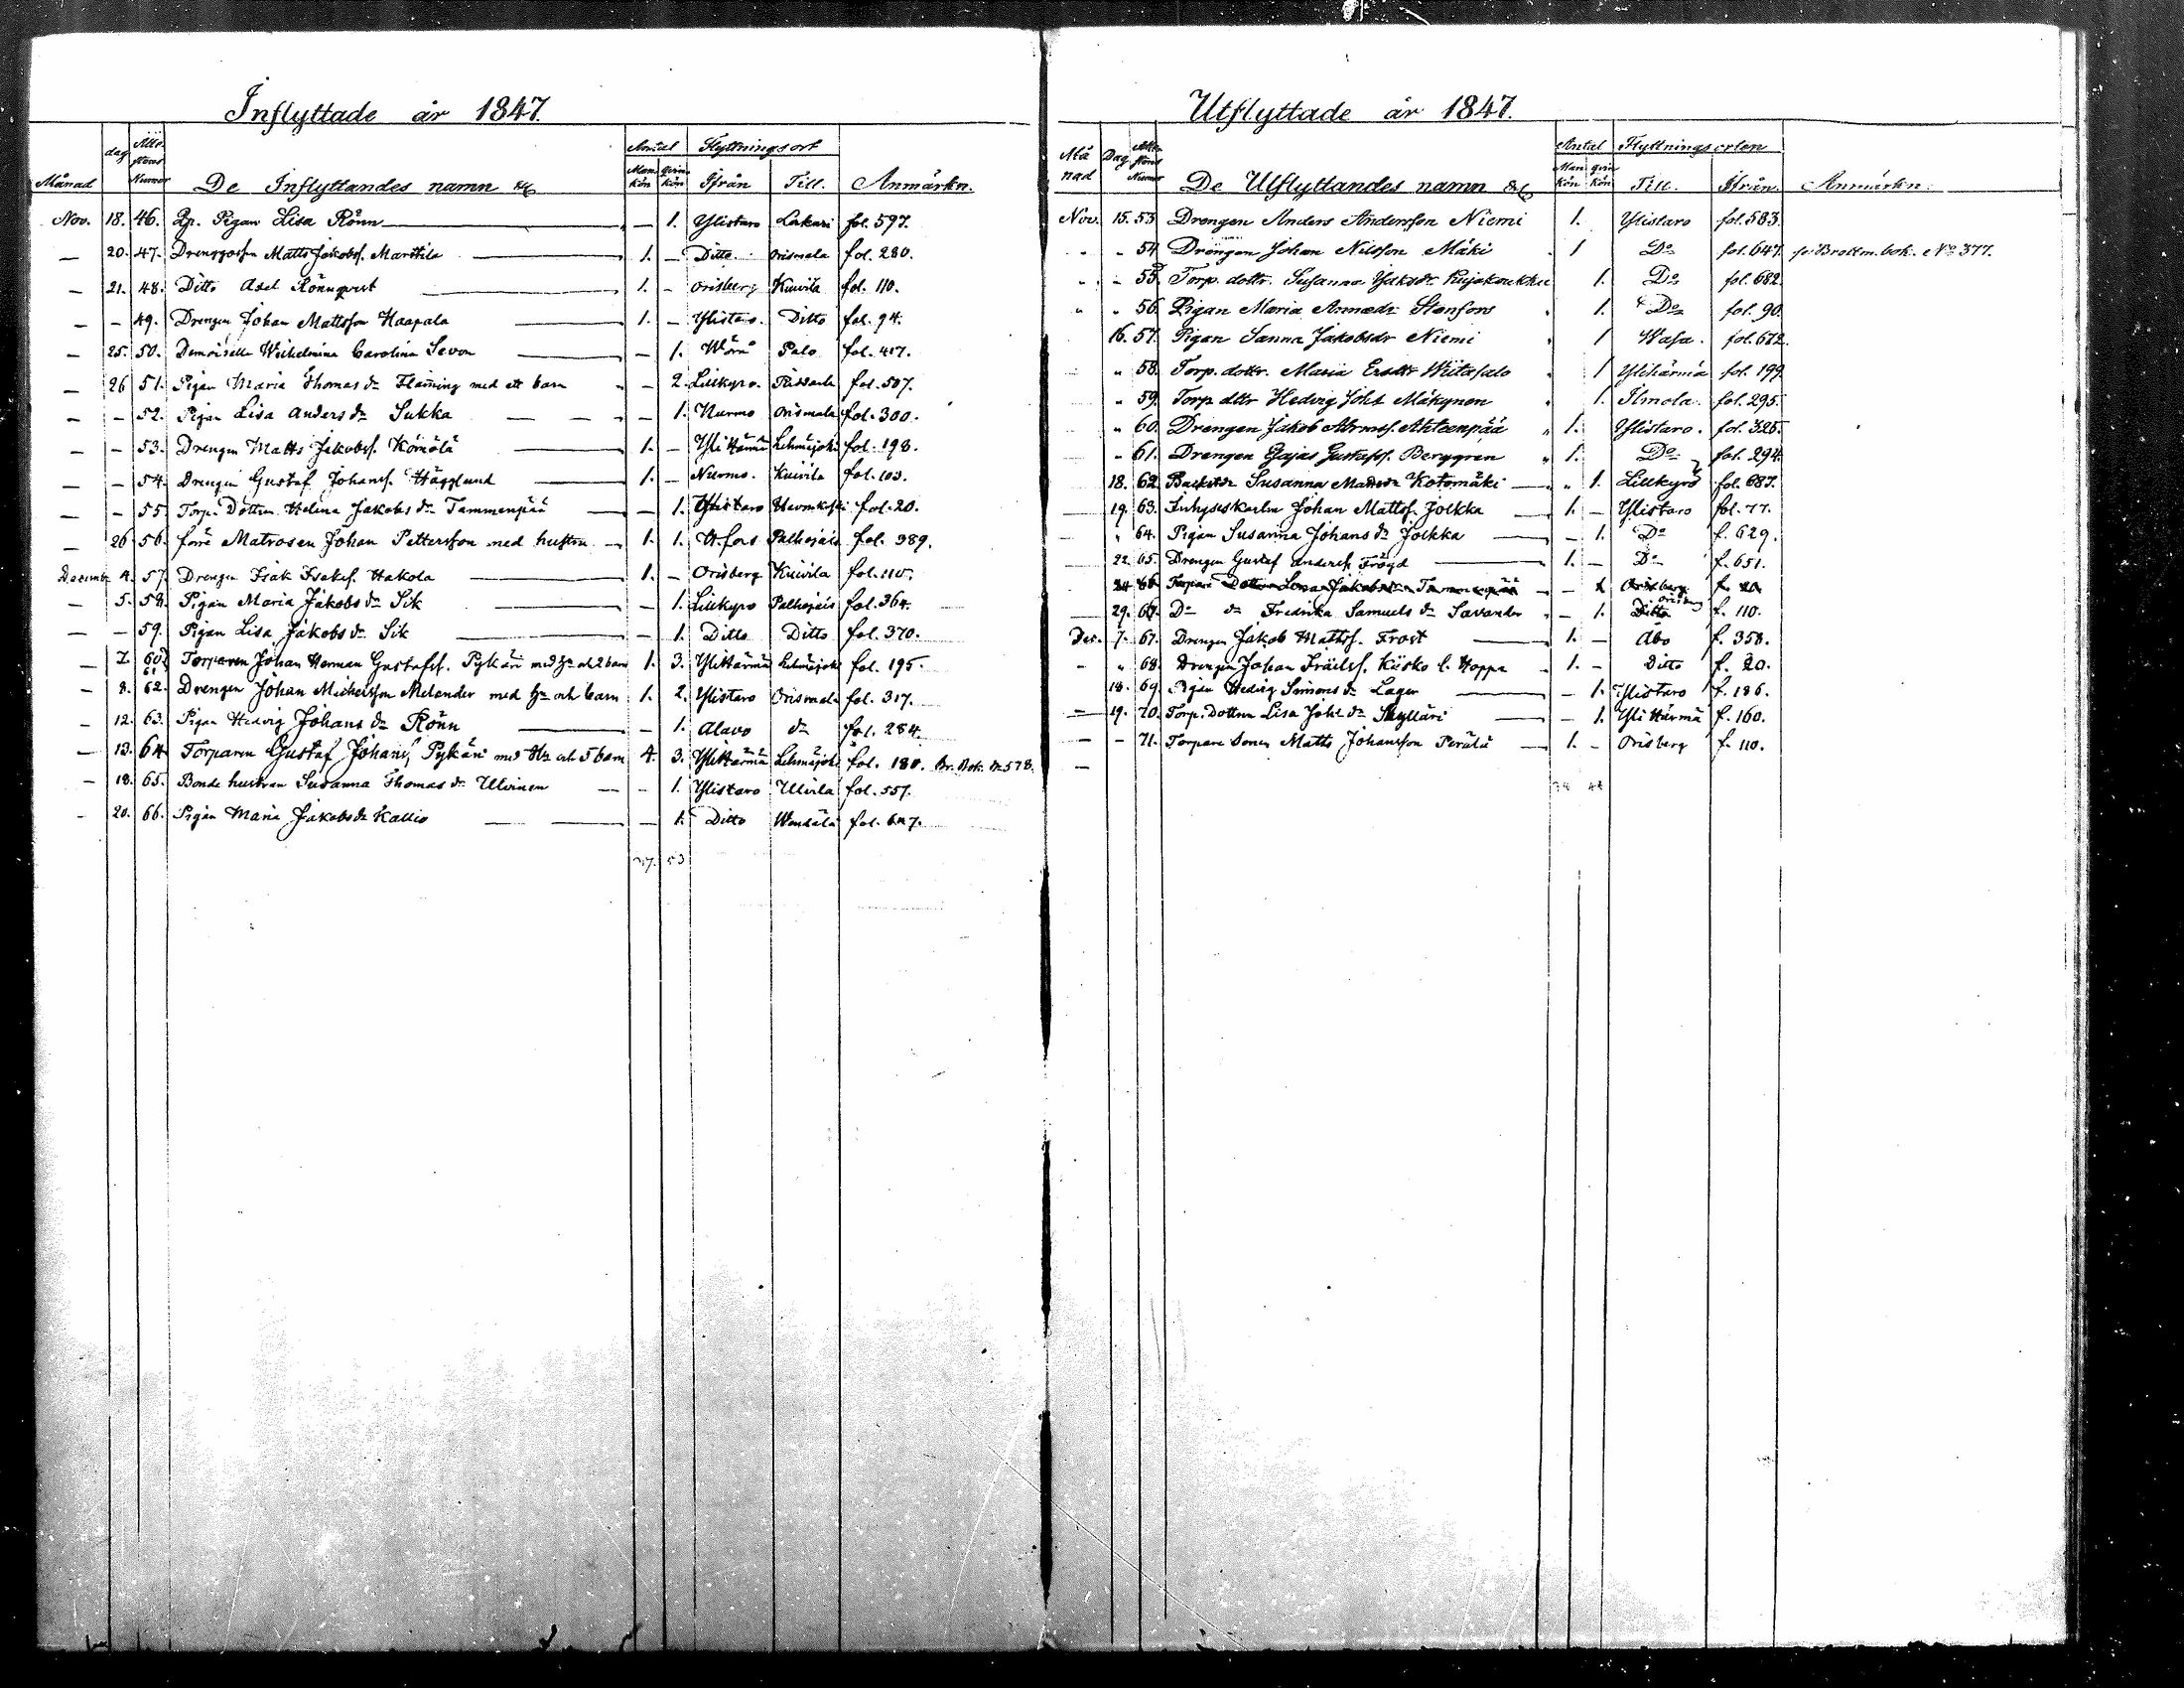 Inflyttade år 1847.
Månad dag Atte- stens Numer De Inflyttandes namn &c Antal Man kön Qvin kön Flyttningsort Ifrån Till. Anmärkn.
Nov. 18. 46. Pigan Lisa Rönn — 1. Ylistaro Laukari fol. 597.
— 20. 47. Drenggossen Matts Jakobss. Marttila 1. — Ditto Orismala fol. 280.
— 21. 48. Ditto Axel Rönnqvist 1. — Orisberg Kuivila fol. 110.
— — 49. Drengen Johan Mattsson Haapala 1. — Ylistaro. Ditto fol. 94.
— 25. 50. Demoiselle Wilhelmina Carolina Sevon — 1. Wörå Palo fol. 417.
— 26 51. Pigan Maria Thomas dr Flaming med ett barn — 2. Lillkyro. fol. 507.
— — 52. Pigan Lisa Anders dr Sukka — 1. Nurmo Orismala fol. 300.
— — 53. Drengen Matts Jakobss. Kömölä 1. — Ylihärmä Lehmäjoki fol. 198.
— — 54. Drengen Gustaf Johanss. Hägglund 1. — Nurmo. Kuivila fol. 103.
— — 55. Torp. Dottren Helena Jakobs dr Tammenpää — 1. Ylistaro fol. 20.
— 26 56. förre Matrosen Johan Pettersson med hustru 1. 1. H:fors Palhojais fol. 389.
Decemb. 4. 57. Drengen Isak Isakss. Hakola 1. — Orisberg Kuivila fol. 110.
— 5. 58. Pigan Maria Jakobs dr Sik — 1. Lillkyro Palhojais fol. 364.
— — 59. Pigan Lisa Jakobs dr Sik — 1. Ditto Ditto fol. 370.
— 7. 60. 61 Torparen Johan Herman Gustafss. Pykäri med Hu och 2 barn 1. 3. Ylihärmä Lehmäjoki fol. 195.
— 8. 62. Drengen Johan Michelsson Melander med Hu och barn 1. 2. Ylistaro Orismala fol. 317.
— 12. 63. Pigan Hedvig Johans dr Rönn — 1. Alavo do fol. 284.
— 13. 64. Torparen Gustaf Johanss. Pykäri med Hu och 5 barn 4. 3. Ylihärmä Lehmäjoki fol. 180. Br. Bok. No 578.
— 18. 65. Bonde hustrun Susanna Thomas dr Ulvinen — 1. Ylistaro Ulvila fol. 557.
— 20. 66. Pigan Maria Jakobs dr Kallio — 1. Ditto fol. 647.
37. 53
Utflyttade år 1847.
Månad Dag Atte- stens Numer De Utflyttandes namn &c Antal Man kön qvin kön Flyttningsorten Till. Ifrån. Anmärkn.
Nov. 15. 53 Drengen Anders Andersson Niemi 1. Ylistaro fol. 583.
" " 54 Drängen Johan Nilsson Mäki 1 Do fol. 647. Brottm. bok. No 377.
" " 55 Torp. dottr. Susanna Isaksdr Kujakoukku 1. Do fol. 682.
" " 56 Pigan Maria Stenfors 1. Do fol. 90.
16. 57. Pigan Sanna Jakobsdr Niemi 1 Wasa. fol. 672.
" 58. Torp. dottr. Maria Wiitasalo 1 Ylihärmä fol. 199
" 59. Torp. dttr Hedvig Johs Mäkynen 1. Ilmola. fol. 295.
" 60. Drengen Jakob Abrmss. Ahteenpää 1. Ylistaro. fol. 325.
" 61. Drengen Gustafss. Berggren 1. Do fol. 294.
18. 62. Susanna Kotomäki " 1. Lillkyrö fol. 687.
19. 63. Inhyseskarlen Johan Mattss. Jolkka 1. — Ylistaro fol. 77.
" 64. Pigan Susanna Johans dr Jolkka — 1. Do f. 629.
22. 65. Drengen Gustaf Anderss. Fröjd 1. — Do f. 651.
24 66 Torpare Dottren Lena Jakobs dr Tammenpää — 1 Orisberg f. 20.
29. 67. Do dr Fredrika Samuels dr Savander — 1. Ditto Orisberg f. 110.
Dec. 7. 67. Drengen Jakob Mattss. Frost 1. — Åbo f. 358.
— " 68. Drengen Johan Kiisko l. Hoppa 1. — Ditto f. 20.
18. 69. Pigan Hedvig Simons dr Lager — 1. Ylistaro f. 186.
— 19. 70. Torp. Dottren Lisa Johs dr Skylläri — 1. Ylihärmä f. 160.
— — 71. Torpare Sonen Matts Johansson Perälä 1. — Orisberg f. 110.